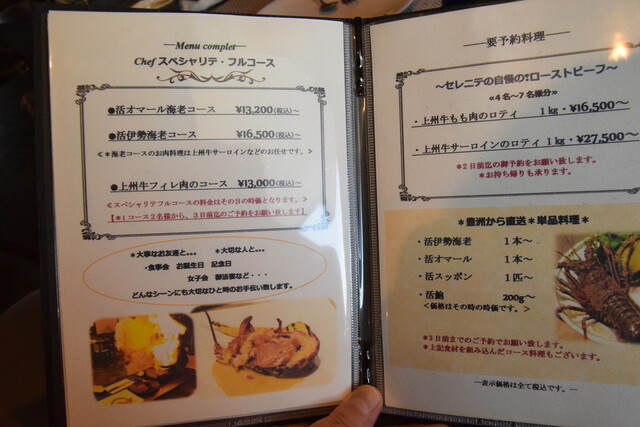 —Menu complet—
Chef スペシャリテ・フルコース
●活オマール海老コース ¥13,200(税込)~
●活伊勢海老コース ¥16,500(税込)~
≪*海老コースのお肉料理は上州牛サーロインなどのお任せです。≫
●上州牛フィレ肉のコース ¥13,000(税込)~
≪スペシャリテフルコースの料金はその日の時価となります。≫
【*1コース2名様から、3日前迄のご予約をお願い致します】
*大事なお友達と。。。 *大切な人と。。。
・食事会 お誕生日 記念日
女子会 御法要など・・・
どんなシーンにも大切なひと時のお手伝い致します。
——要予約料理——
~セレニテの自慢の!ローストビーフ~
≪4名~7名様分≫
・上州牛もも肉のロティ 1kg・¥16,500~
・上州牛サーロインのロティ 1kg・¥27,500~
*2日前迄の御予約をお願い致します。
*お持ち帰りも承ります。
*豊洲から直送*単品料理*
・活伊勢海老 1本~
・活オマール 1本~
・活スッポン 1匹~
・活鮑 200g~
<価格はその時の時価です。>
*3日前までのご予約でお願い致します。
*上記食材を組み込んだコース料理もございます。
—表示価格は全て税込です。—